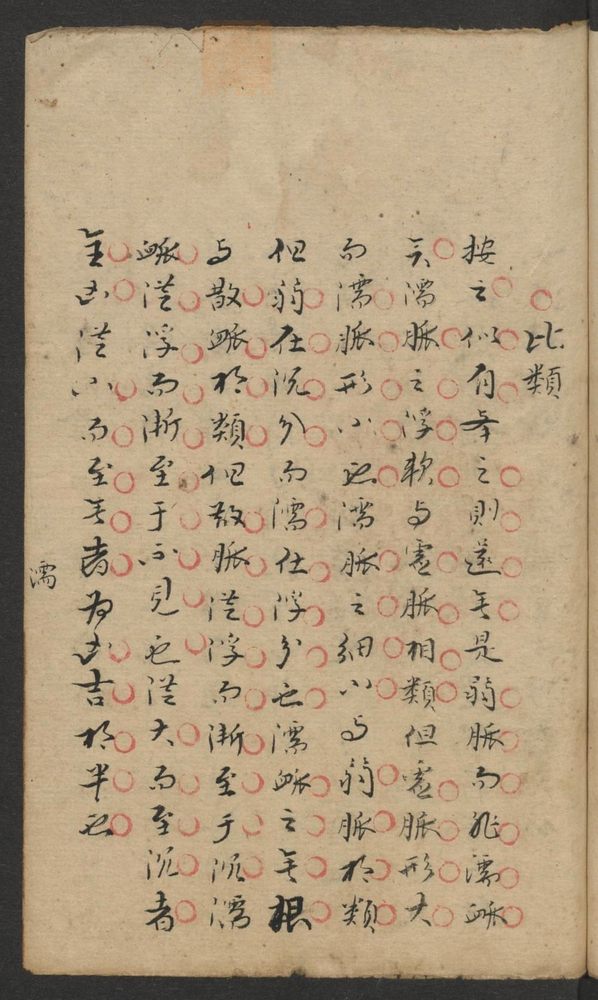 比類
按之似有舉之則還無是弱脈而非濡脈
矣濡脈之浮軟与虛脈相類但虛脈形大
而濡脈形小也濡脈之細小与弱脈相類
但弱在沉分而濡在浮分也濡脈之無根
与散脈相類但散脈從浮而漸至于沉濡
脈從浮而漸至于不見也從大而至沉者
全凶從小而至無者為凶吉相半也
濡